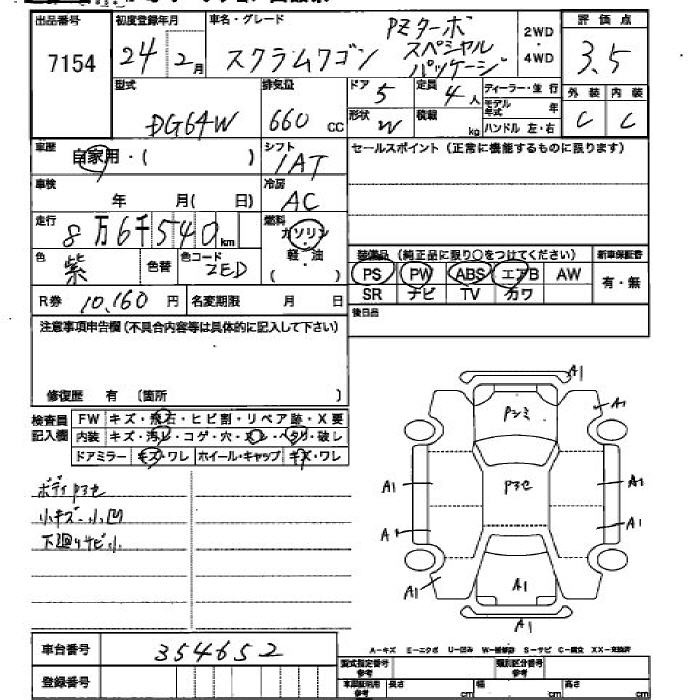 出品番号 初度登録年月 車名・グレード 評価点
7154 24年2月 スクラムワゴン PZターボ スペシャル パッケージ 2WD・4WD 3.5
型式 排気量 ドア 定員 ディーラー・並行 外装 内装
DG64W 660cc 5 4人 モデル年式 年 C C
形状 W 積載 kg ハンドル 左・右
車歴 自家用・( ) シフト IAT セールスポイント (正常に機能するものに限ります)
車検 年 月( 日) 冷房 AC
走行 8万6千540km 燃料 ガソリン
軽・油
( )
色 紫 色替 色コード ZED
装備品 (純正品に限り○をつけてください) 新車保証書
PS PW ABS エアB AW 有・無
SR ナビ TV カワ
R券 10,160円 名変期限 月 日 後日品
注意事項申告欄 (不具合内容等は具体的に記入して下さい)
修復歴 有 (箇所 )
検査員記入欄 FW キズ・飛石・ヒビ割・リペア跡・X要
内装 キズ・汚レ・コゲ・穴・ヌレ・ヘタリ・破レ
ドアミラー キズ・ワレ ホイール・キャップ キズ・ワレ
ボディPヨセ
小キズ・小凹
下廻りサビ小
A1
Pシミ A1
A1 Pヨセ A1
A1 A1
A1 A1
A1
A-キズ E-エクボ U-凹み W-補修跡 S-サビ C-腐食 XX-交換済
車台番号 354652 型式指定番号 参考 類別区分番号 参考
登録番号 長さ cm 幅 cm 高さ cm